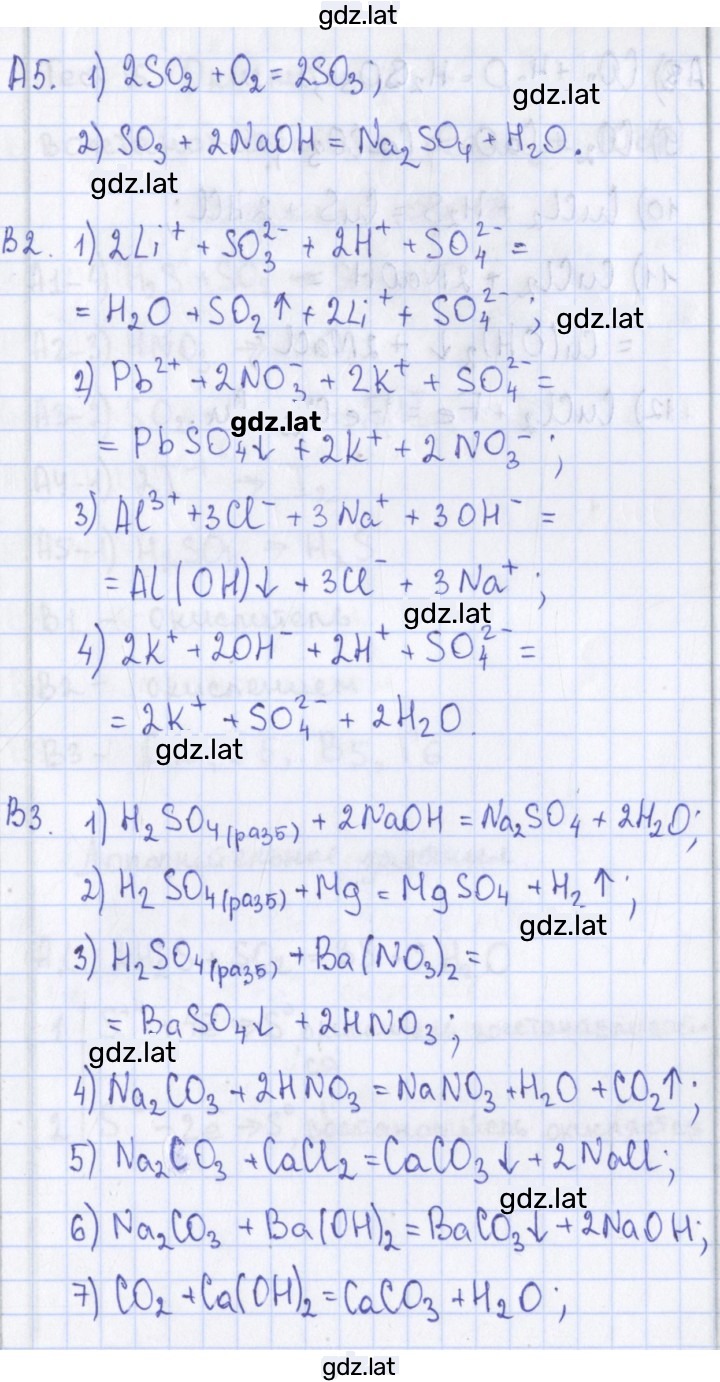 gdz.lat
А5. 1) 2SO₂ + O₂ = 2SO₃;
gdz.lat
2) SO₃ + 2NaOH = Na₂SO₄ + H₂O.
gdz.lat
В2. 1) 2Li⁺ + SO₃²⁻ + 2H⁺ + SO₄²⁻ =
= H₂O + SO₂↑ + 2Li⁺ + SO₄²⁻;
gdz.lat
2) Pb²⁺ + 2NO₃⁻ + 2K⁺ + SO₄²⁻ =
gdz.lat
= PbSO₄↓ + 2K⁺ + 2NO₃⁻;
3) Al³⁺ + 3Cl⁻ + 3Na⁺ + 3OH⁻ =
= Al(OH)↓ + 3Cl⁻ + 3Na⁺;
gdz.lat
4) 2K⁺ + 2OH⁻ + 2H⁺ + SO₄²⁻ =
= 2K⁺ + SO₄²⁻ + 2H₂O.
gdz.lat
В3. 1) H₂SO₄(разб) + 2NaOH = Na₂SO₄ + 2H₂O;
2) H₂SO₄(разб) + Mg = MgSO₄ + H₂↑;
gdz.lat
3) H₂SO₄(разб) + Ba(NO₃)₂ =
= BaSO₄↓ + 2HNO₃;
gdz.lat
4) Na₂CO₃ + 2HNO₃ = NaNO₃ + H₂O + CO₂↑;
5) Na₂CO₃ + CaCl₂ = CaCO₃↓ + 2NaCl;
gdz.lat
6) Na₂CO₃ + Ba(OH)₂ = BaCO₃↓ + 2NaOH;
7) CO₂ + Ca(OH)₂ = CaCO₃ + H₂O;
gdz.lat